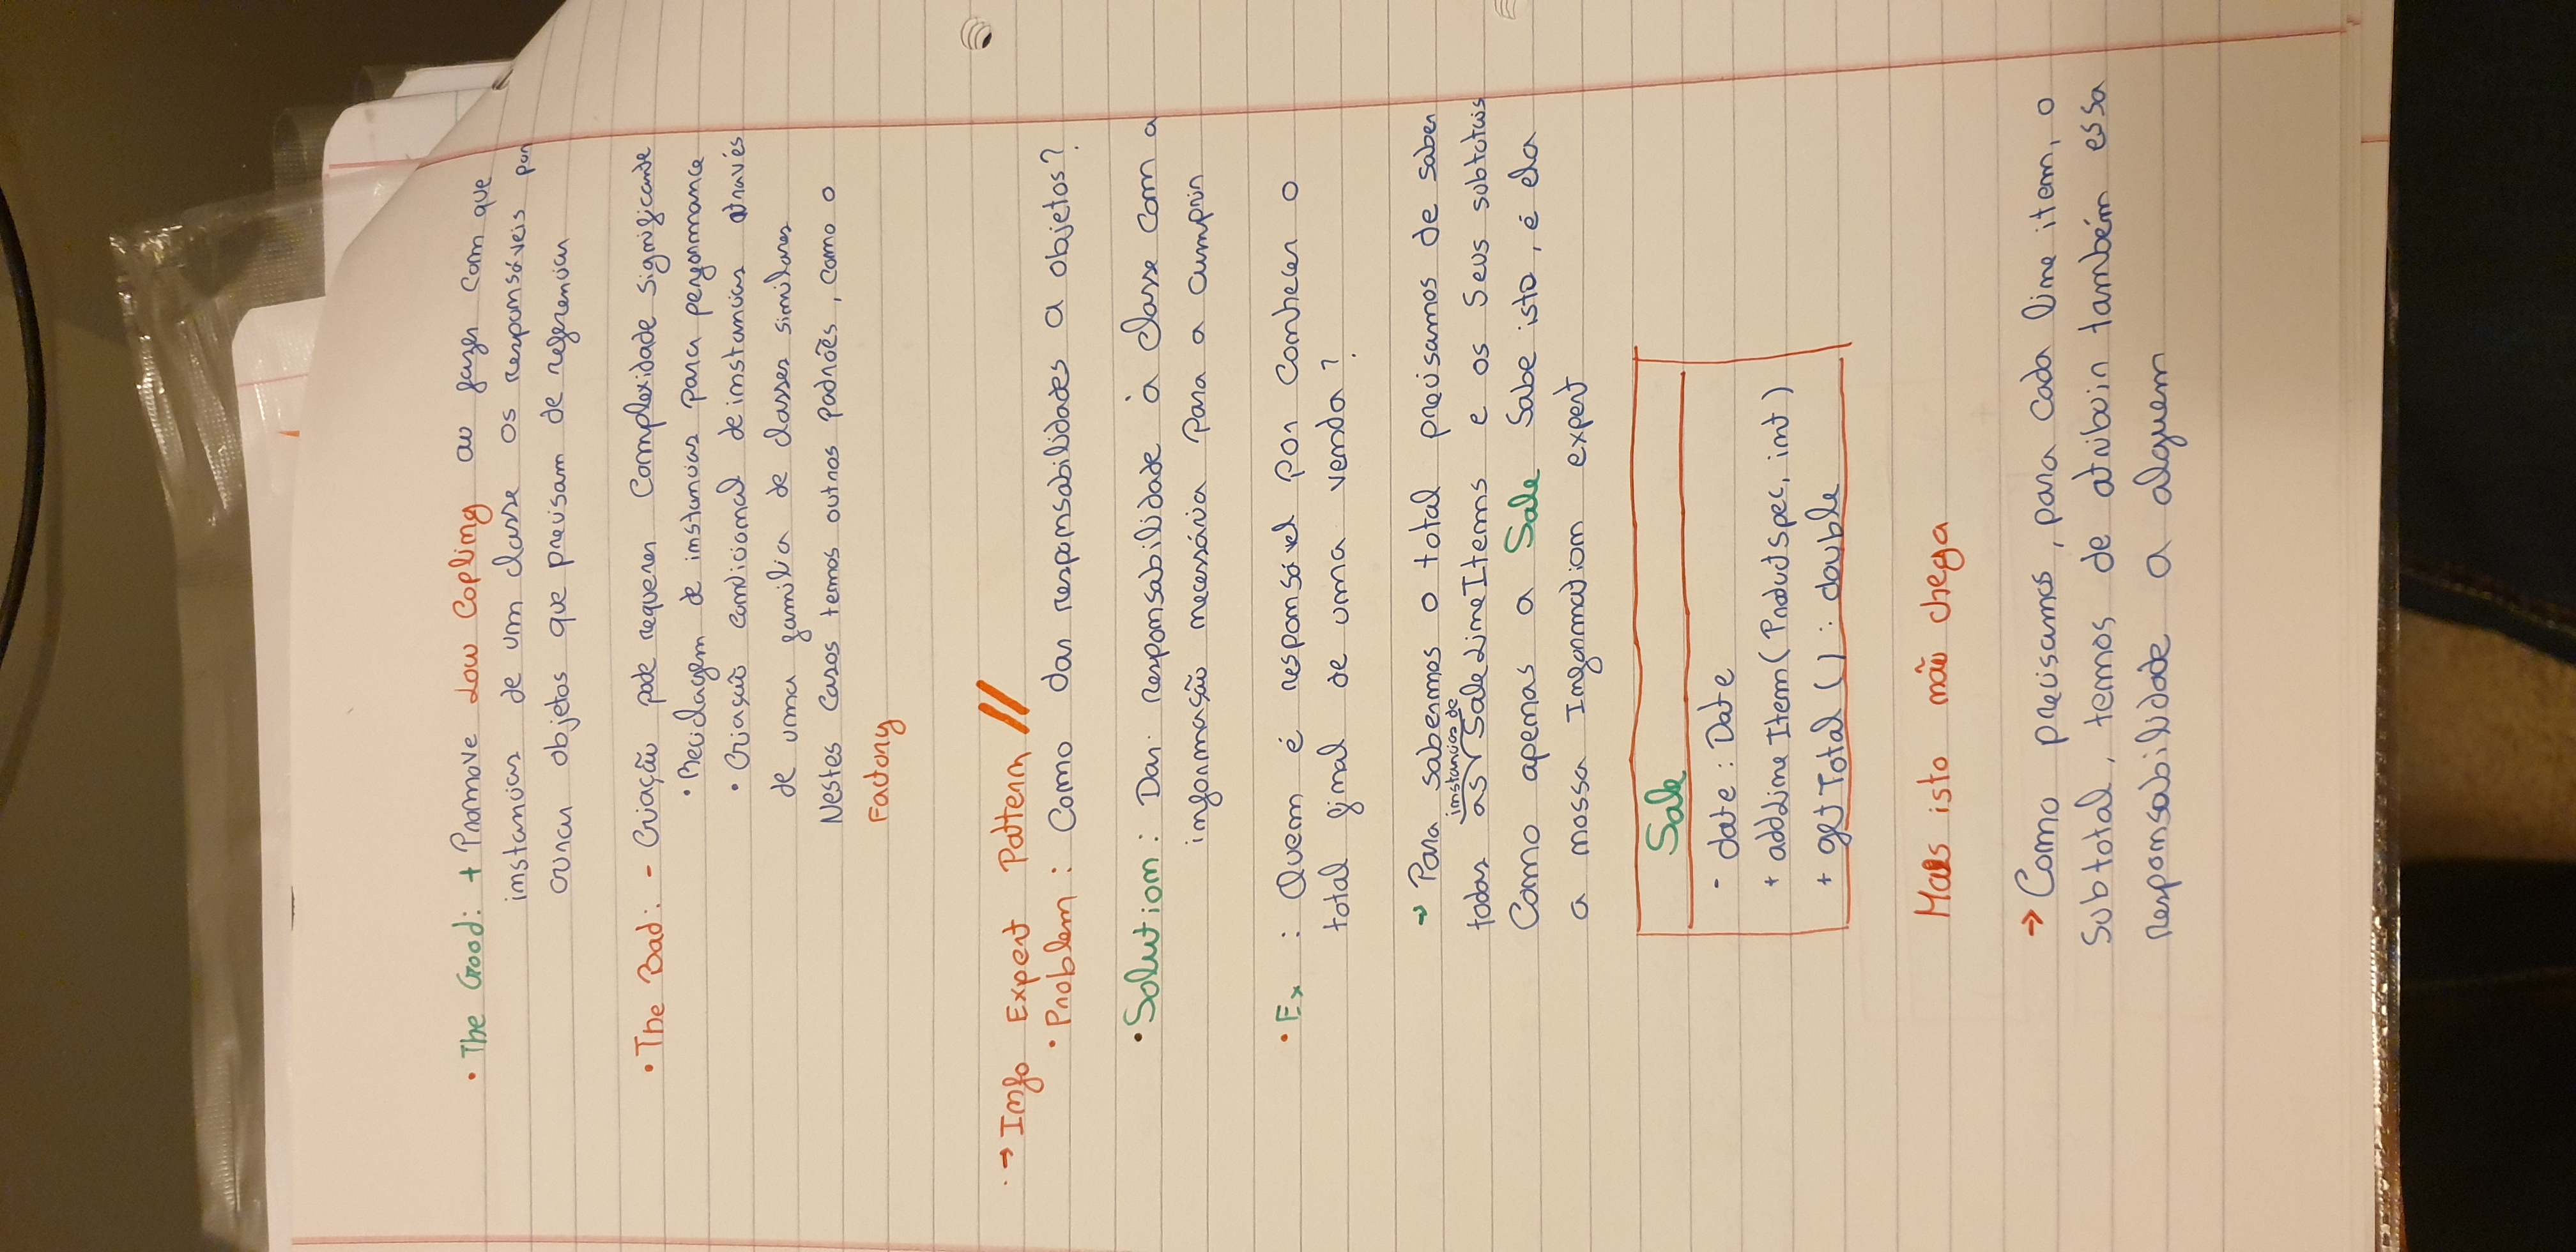 • The Good: + Promove Low Copling ao fazer com que
instancias de um classe os responsáveis por
criar objetos que precisam de referenciar
• The Bad: - Criação pode requerer complexidade significante
• Reciclagem de instancias para performance
• Criação condicional de instancias através
de uma familia de classes similares
Nestes casos temos outros padrões, como o
Factory
→ Info Expert Pattern //
• Problem : Como dar responsabilidades a objetos?
• Solution : Dar responsabilidade à classe com a
informação necessária para a cumprir
• Ex : Quem é responsável por conhecer o
total final de uma venda?
→ Para sabermos o total precisamos de saber
instancias de
todas as SaleLineItems e os seus subtotais
Como apenas a Sale sabe isto, é ela
a nossa Information expert
Sale
- date : Date
+ addLineItem(ProductSpec, int)
+ getTotal() : double
Mas isto não chega
→ Como precisamos, para cada line item, o
subtotal, temos de atribuir também essa
responsabilidade a alguem